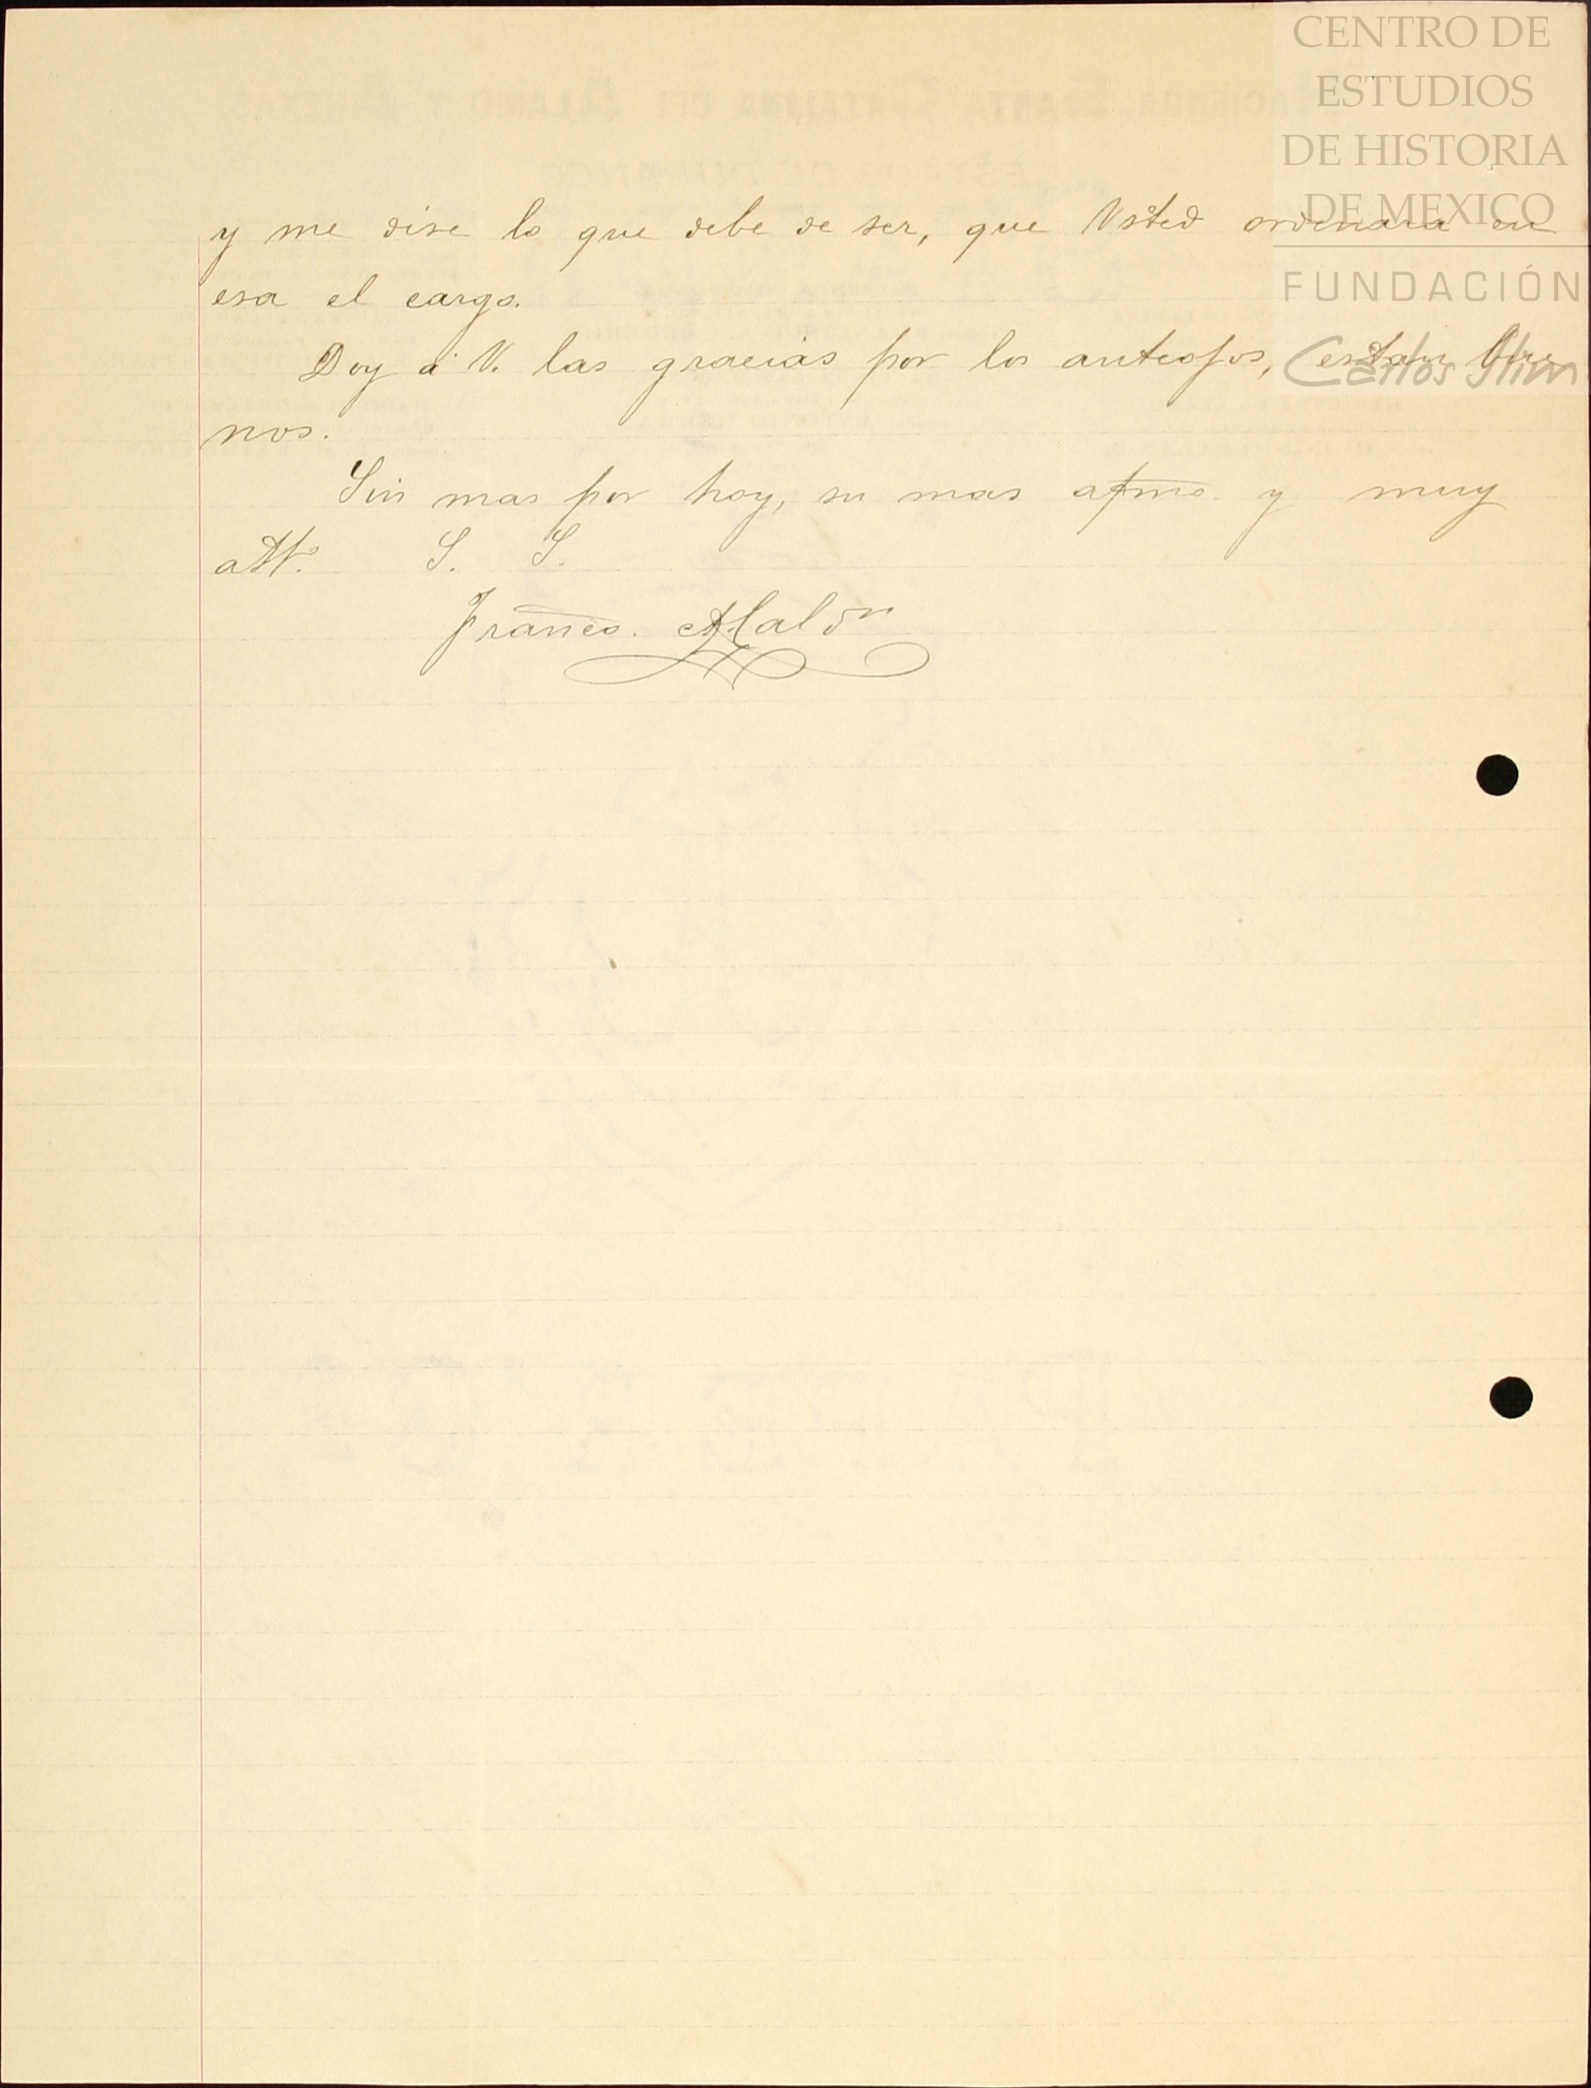 CENTRO DE
ESTUDIOS
DE HISTORIA
DE MEXICO
FUNDACIÓN
Carlos Slim
y me dise lo que debe de ser, que Usted ordenara en
esa el cargo.
Doy á V. las gracias por los anteojos, estan bue
nos.
Sin mas por hoy, su mas afmo. y muy
att. S. S.
Franco.